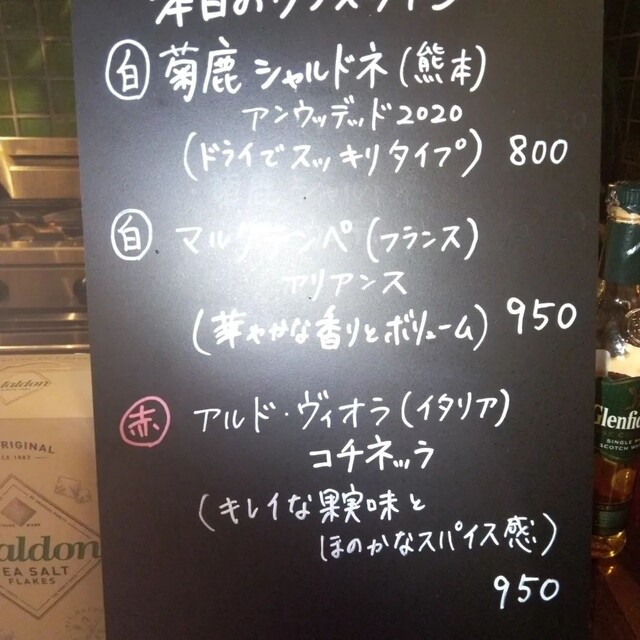 本日のグラスワイン
白 菊鹿 シャルドネ (熊本)
アンウッデッド2020
(ドライでスッキリタイプ) 800
白 マルクテンペ (フランス)
アリアンス
(華やかな香りとボリューム) 950
赤 アルド・ヴィオラ (イタリア)
コチネッラ
(キレイな果実味と
ほのかなスパイス感)
950
ORIGINAL
aldon
SEA SALT
FLAKES
Glenfid
SINGLE
SCOTCH